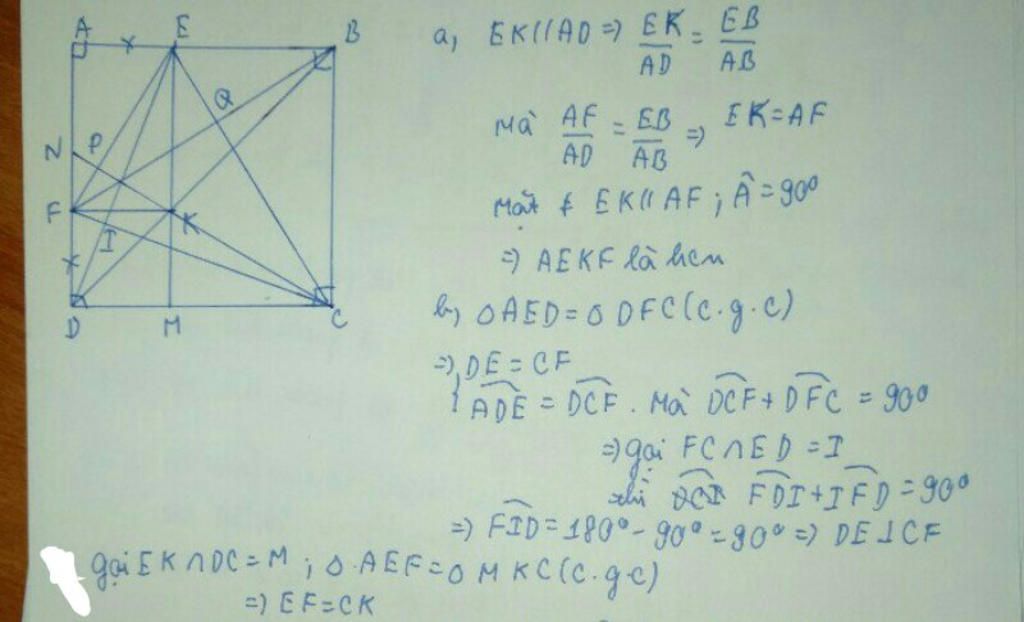 A E B
a, EK // AD => EK/AD = EB/AB
Q
Mà AF/AD = EB/AB => EK = AF
N P
F K
Mặt ≠ EK // AF ; Â = 90°
I
=> AEKF là hcn
D M C
b, △AED = △DFC (c.g.c)
=> DE = CF
ADE = DCF. Mà DCF + DFC = 90°
=> gọi FC ∩ ED = I
thì FDI + IFD = 90°
=> FID = 180° - 90° = 90° => DE ⊥ CF
gọi EK ∩ DC = M ; △AEF = △MKC (c.g.c)
=> EF = CK